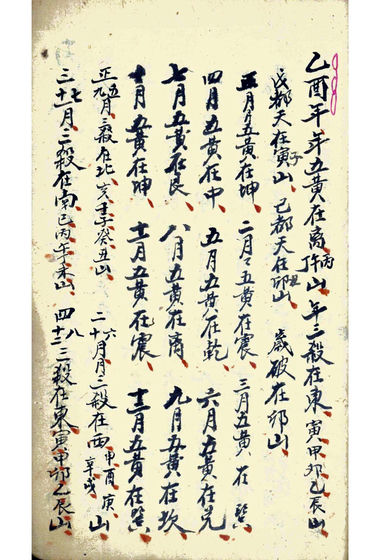 乙酉年年五黃在离丙午丁山 年三殺在東寅甲卯乙辰山
戊都天在寅子山 己都天在卯丑山 歲破在卯山
正月五黃在坤 二月五黃在震 三月五黃在巽
四月五黃在中 五月五黃在乾 六月五黃在兑
七月五黃在艮 八月五黃在离 九月五黃在坎
十月五黃在坤 十一月五黃在震 十二月五黃在巽
正五九月三殺在北亥壬子癸丑山 二六十月三殺在西申酉庚辛戌山
三七十一月三殺在南巳丙午未山 四八十二三殺在東寅甲卯乙辰山